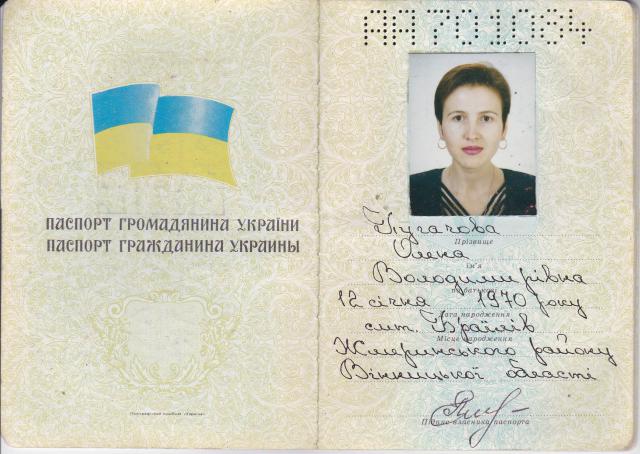 ПАСПОРТ ГРОМАДЯНИНА УКРАЇНИ
ПАСПОРТ ГРАЖДАНИНА УКРАИНЫ
АА701084
Пугачова
Прізвище
Олена
Ім'я
Володимирівна
по батькові
12 січня 1970 року
Дата народження
смт. Браїлів
Місце народження
Жмеринського району
Вінницької області
Підпис власника паспорта